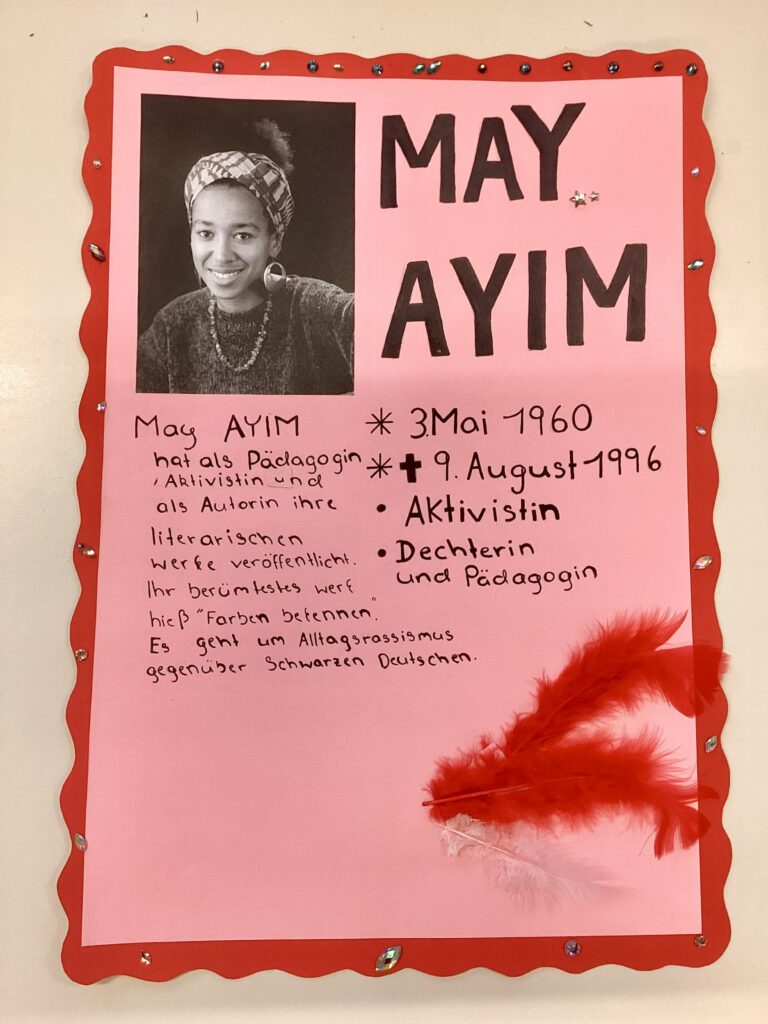 MAY
AYIM
May AYIM
hat als Pädagogin
, Aktivistin und
als Autorin ihre
literarischen
werke veröffentlicht.
Ihr berümtestes werk
hieß "Farben bekennen".
Es geht um Alltagsrassismus
gegenüber Schwarzen Deutschen.
* 3.Mai 1960
* ✝ 9. August 1996
• Aktivistin
• Dechterin
und Pädagogin